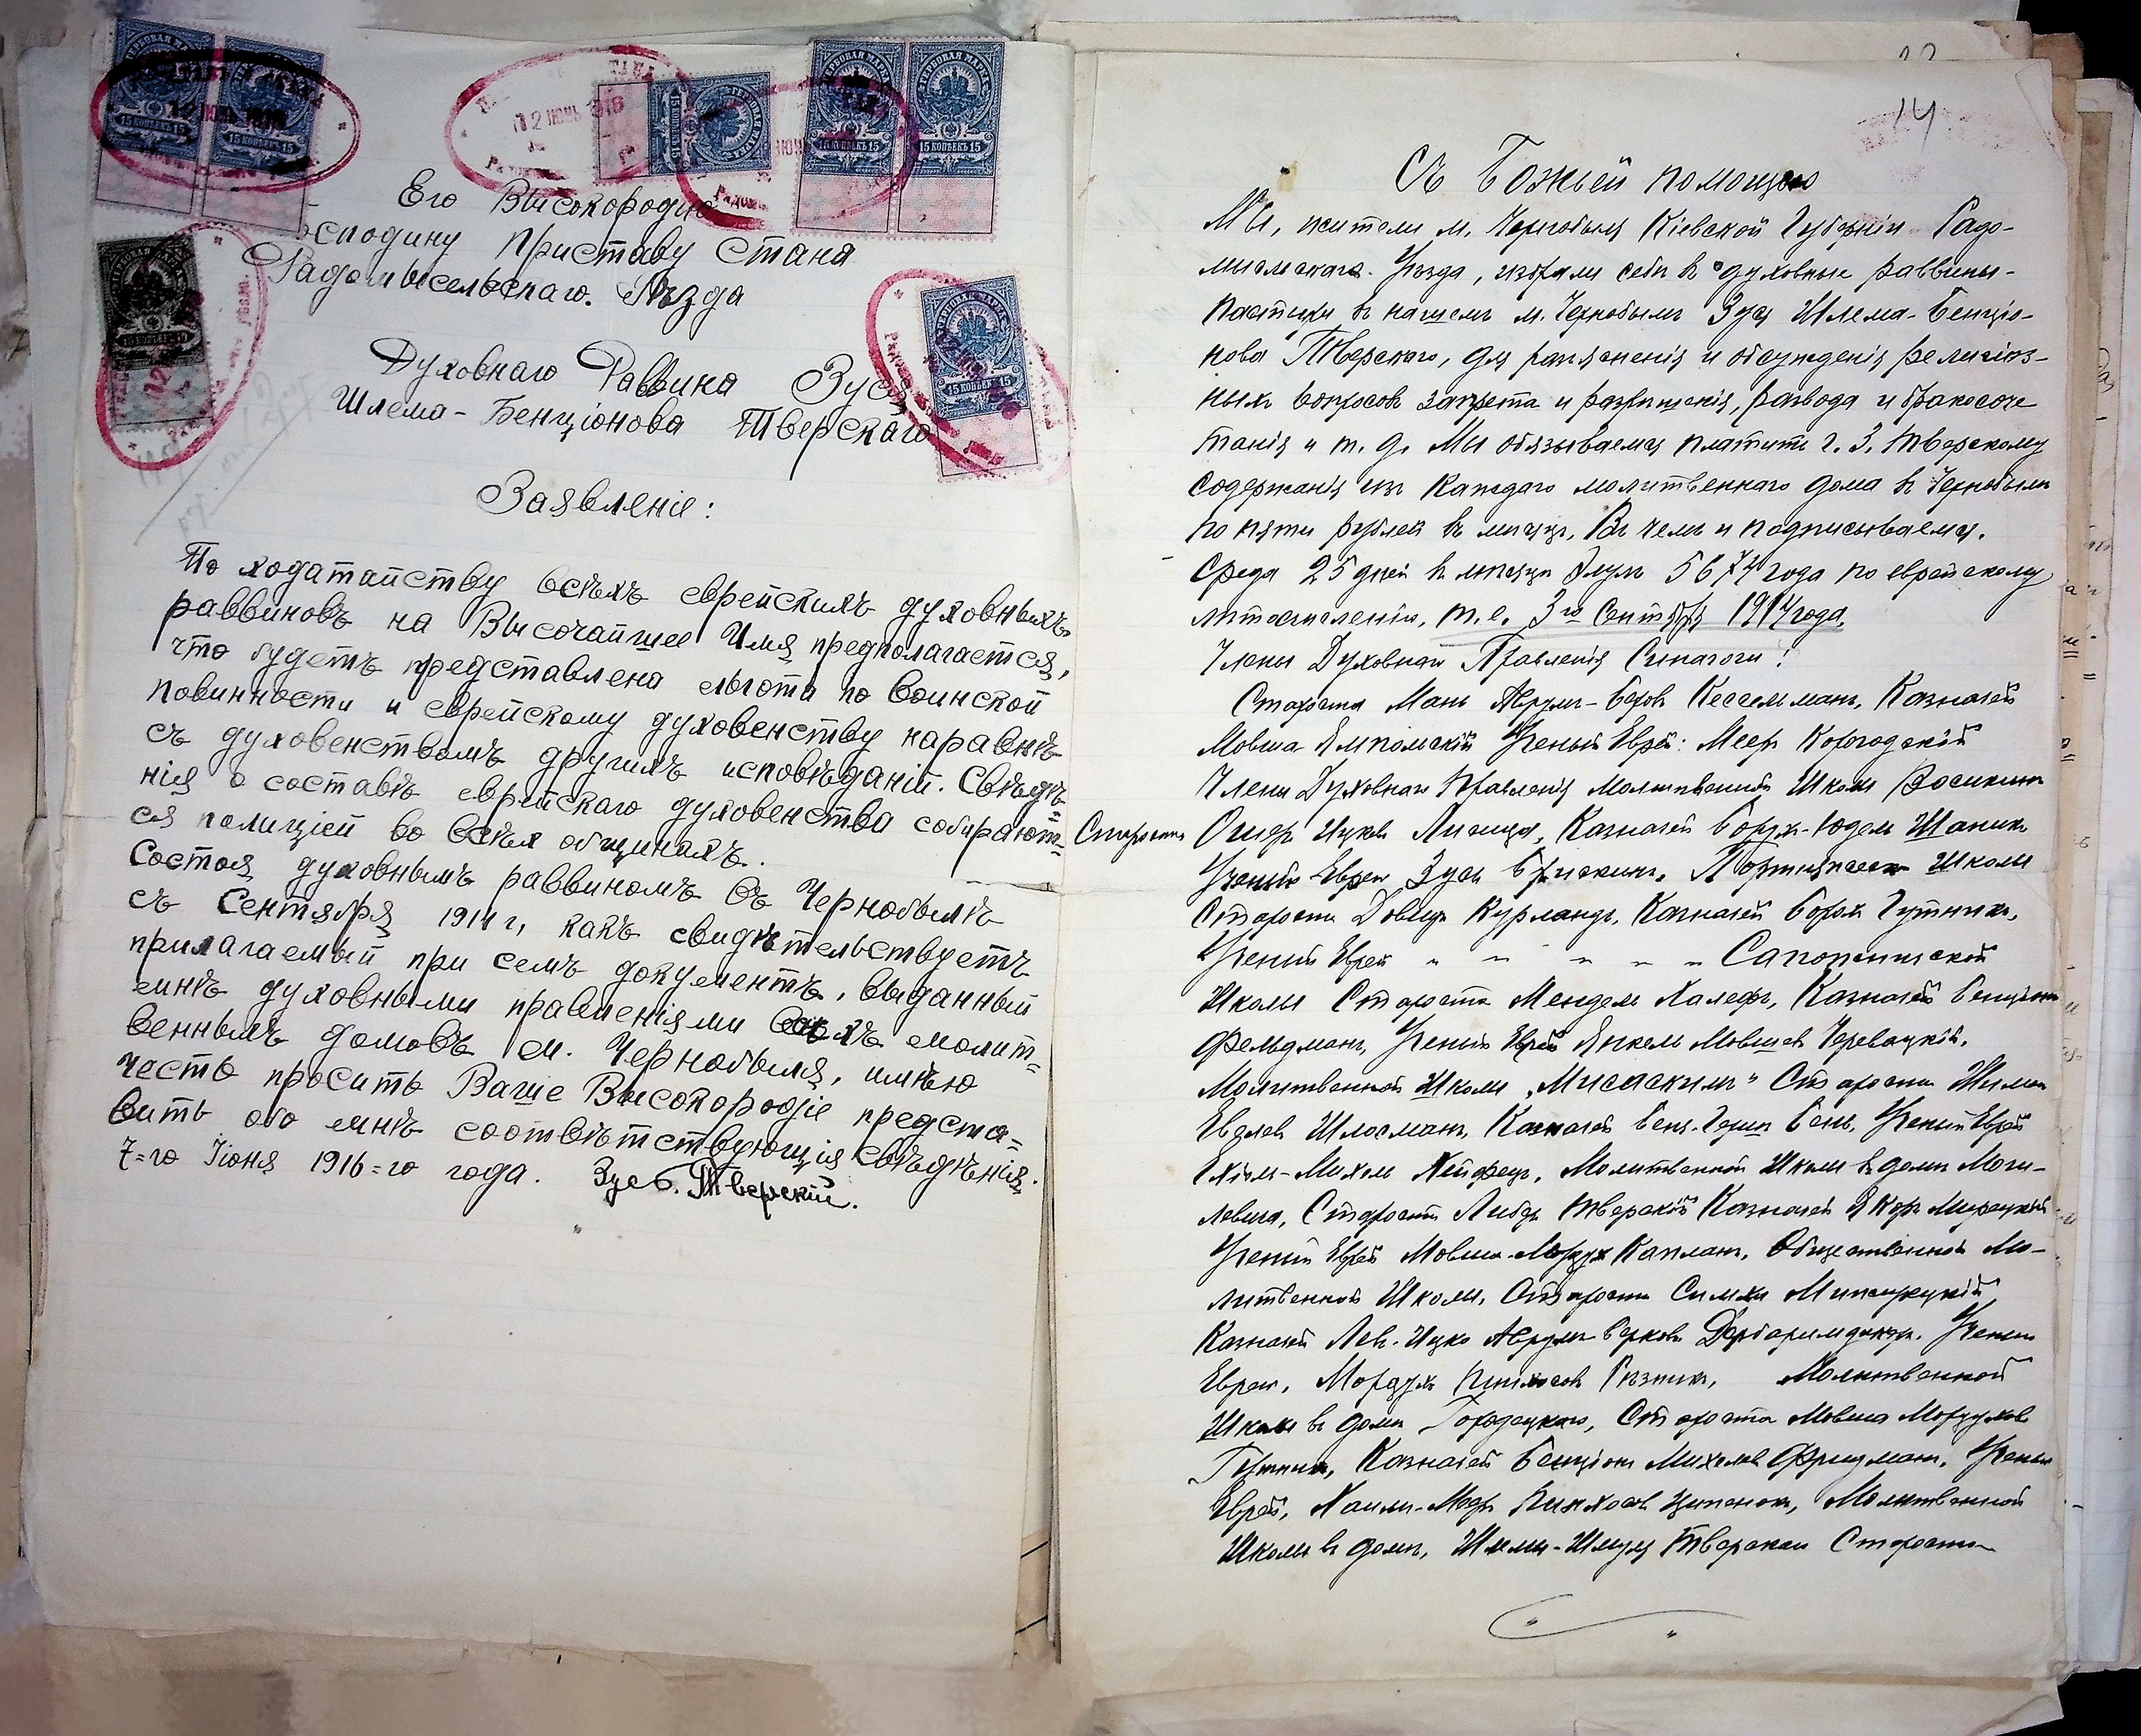 12 ІЮНЬ 1916
15 КОПѢЕКЪ 15
15 КОПѢЕКЪ 15
ГЕРБОВАЯ МАРКА
15 КОПѢЕКЪ 15
15 КОПѢЕКЪ 15
15 КОПѢЕКЪ 15
15 КОПѢЕКЪ 15
Его Высокородію
Господину Приставу Стана
Радомысельскаго. Уѣзда
Духовнаго Раввина Зуся
Шлема-Бенціонова Тверскаго
Заявленіе:
По ходатайству всѣхъ еврейскихъ духовныхъ
раввиновъ на Высочайшее Имя предполагается,
что будетъ представлена льгота по воинской
повинности и еврейскому духовенству наравнѣ
съ духовенствомъ другихъ исповѣданій. Свѣдѣ=
нія о составѣ еврейскаго духовенства собирают=
ся полиціей во всѣхъ общинахъ.
Состоя духовнымъ раввиномъ въ Чернобылѣ
съ Сентября 1914 г, какъ свидѣтельствуетъ
прилагаемый при семъ документъ, выданный
мнѣ духовными правленіями всѣхъ молит=
венныхъ домовъ м. Чернобыля, имѣю
честь просить Ваше Высокородіе предста=
вить обо мнѣ соотвѣтствующія свѣдѣнія.
7=го Іюня 1916=го года. Зусь Б. Тверскій.
14
Съ Божьей помощью
Мы, жители м. Чернобыля Кіевской Губерніи Радо-
мысльскаго Уѣзда, избрали себѣ въ духовные раввины-
пастыри въ нашемъ м. Чернобылѣ Зуся Шлема-Бенціо-
нова Тверского, для разъясненія и обсужденія религіоз-
ныхъ вопросовъ запрета и разрѣшенія, развода и бракосоче
танія и т. д. Мы обязываемся платить г. З. Тверскому
содержанія изъ каждаго молитвеннаго дома въ Чернобылѣ
по пяти рублей въ мѣсяцъ, Въ чемъ и подписываемся.
Среда 25 дней въ мѣсяцѣ Элулъ 5674 года по еврейскому
лѣтосчисленію, т.е. 3го Сентября 1914 года.
Члены Духовнаго Правленія Синагоги:
Староста Мань Аврумъ-Беровъ Кессельманъ, Казначей
Мовша Ямпольскій Ученый Еврей: Мееръ Корогодскій
Члены Духовнаго Правленія Молитвенной Школы
Староста Ошеръ Ицковъ Лившицъ, Казначей Борух-Юдель Шапикъ
Ученый Еврей Зусь Брискинъ. Портняжеской Школы
Староста Довидъ Курландъ, Казначей Борох Гутникъ,
Ученый Еврей " " " " " Сапожнической
Школы Староста Мендель Халефъ, Казначей Бенціонъ
Фельдманъ, Ученый Еврей Янкель Мовшев Черевацкій.
Молитвенной Школы „Мисаскимъ" Староста
Шлосманъ, Казначей Ученый Еврей
Ехіель-Михель Хейфецъ, Молитвенной Школы въ домѣ Моги-
левша, Староста Лейбъ Тверской Казначей
Ученый Еврей Мовша-Мордух Капланъ, Общественной Мо-
литвенной Школы, Староста Симха
Казначей Лев-Ицко Аврумъ-Берковъ Дербаримдикеръ. Ученый
Еврей, Мордух Пинхосов Рѣзник, Молитвенной
Школы въ домѣ Городецкаго, Староста Мовша Мордухов
Гутник, Казначей Бенціонъ Михелев Фридманъ, Ученый
Еврей, Хаимъ-Меер Пинхосов Молитвенной
Школы въ домѣ, Шлемы-Шмуля Тверскаго Староста